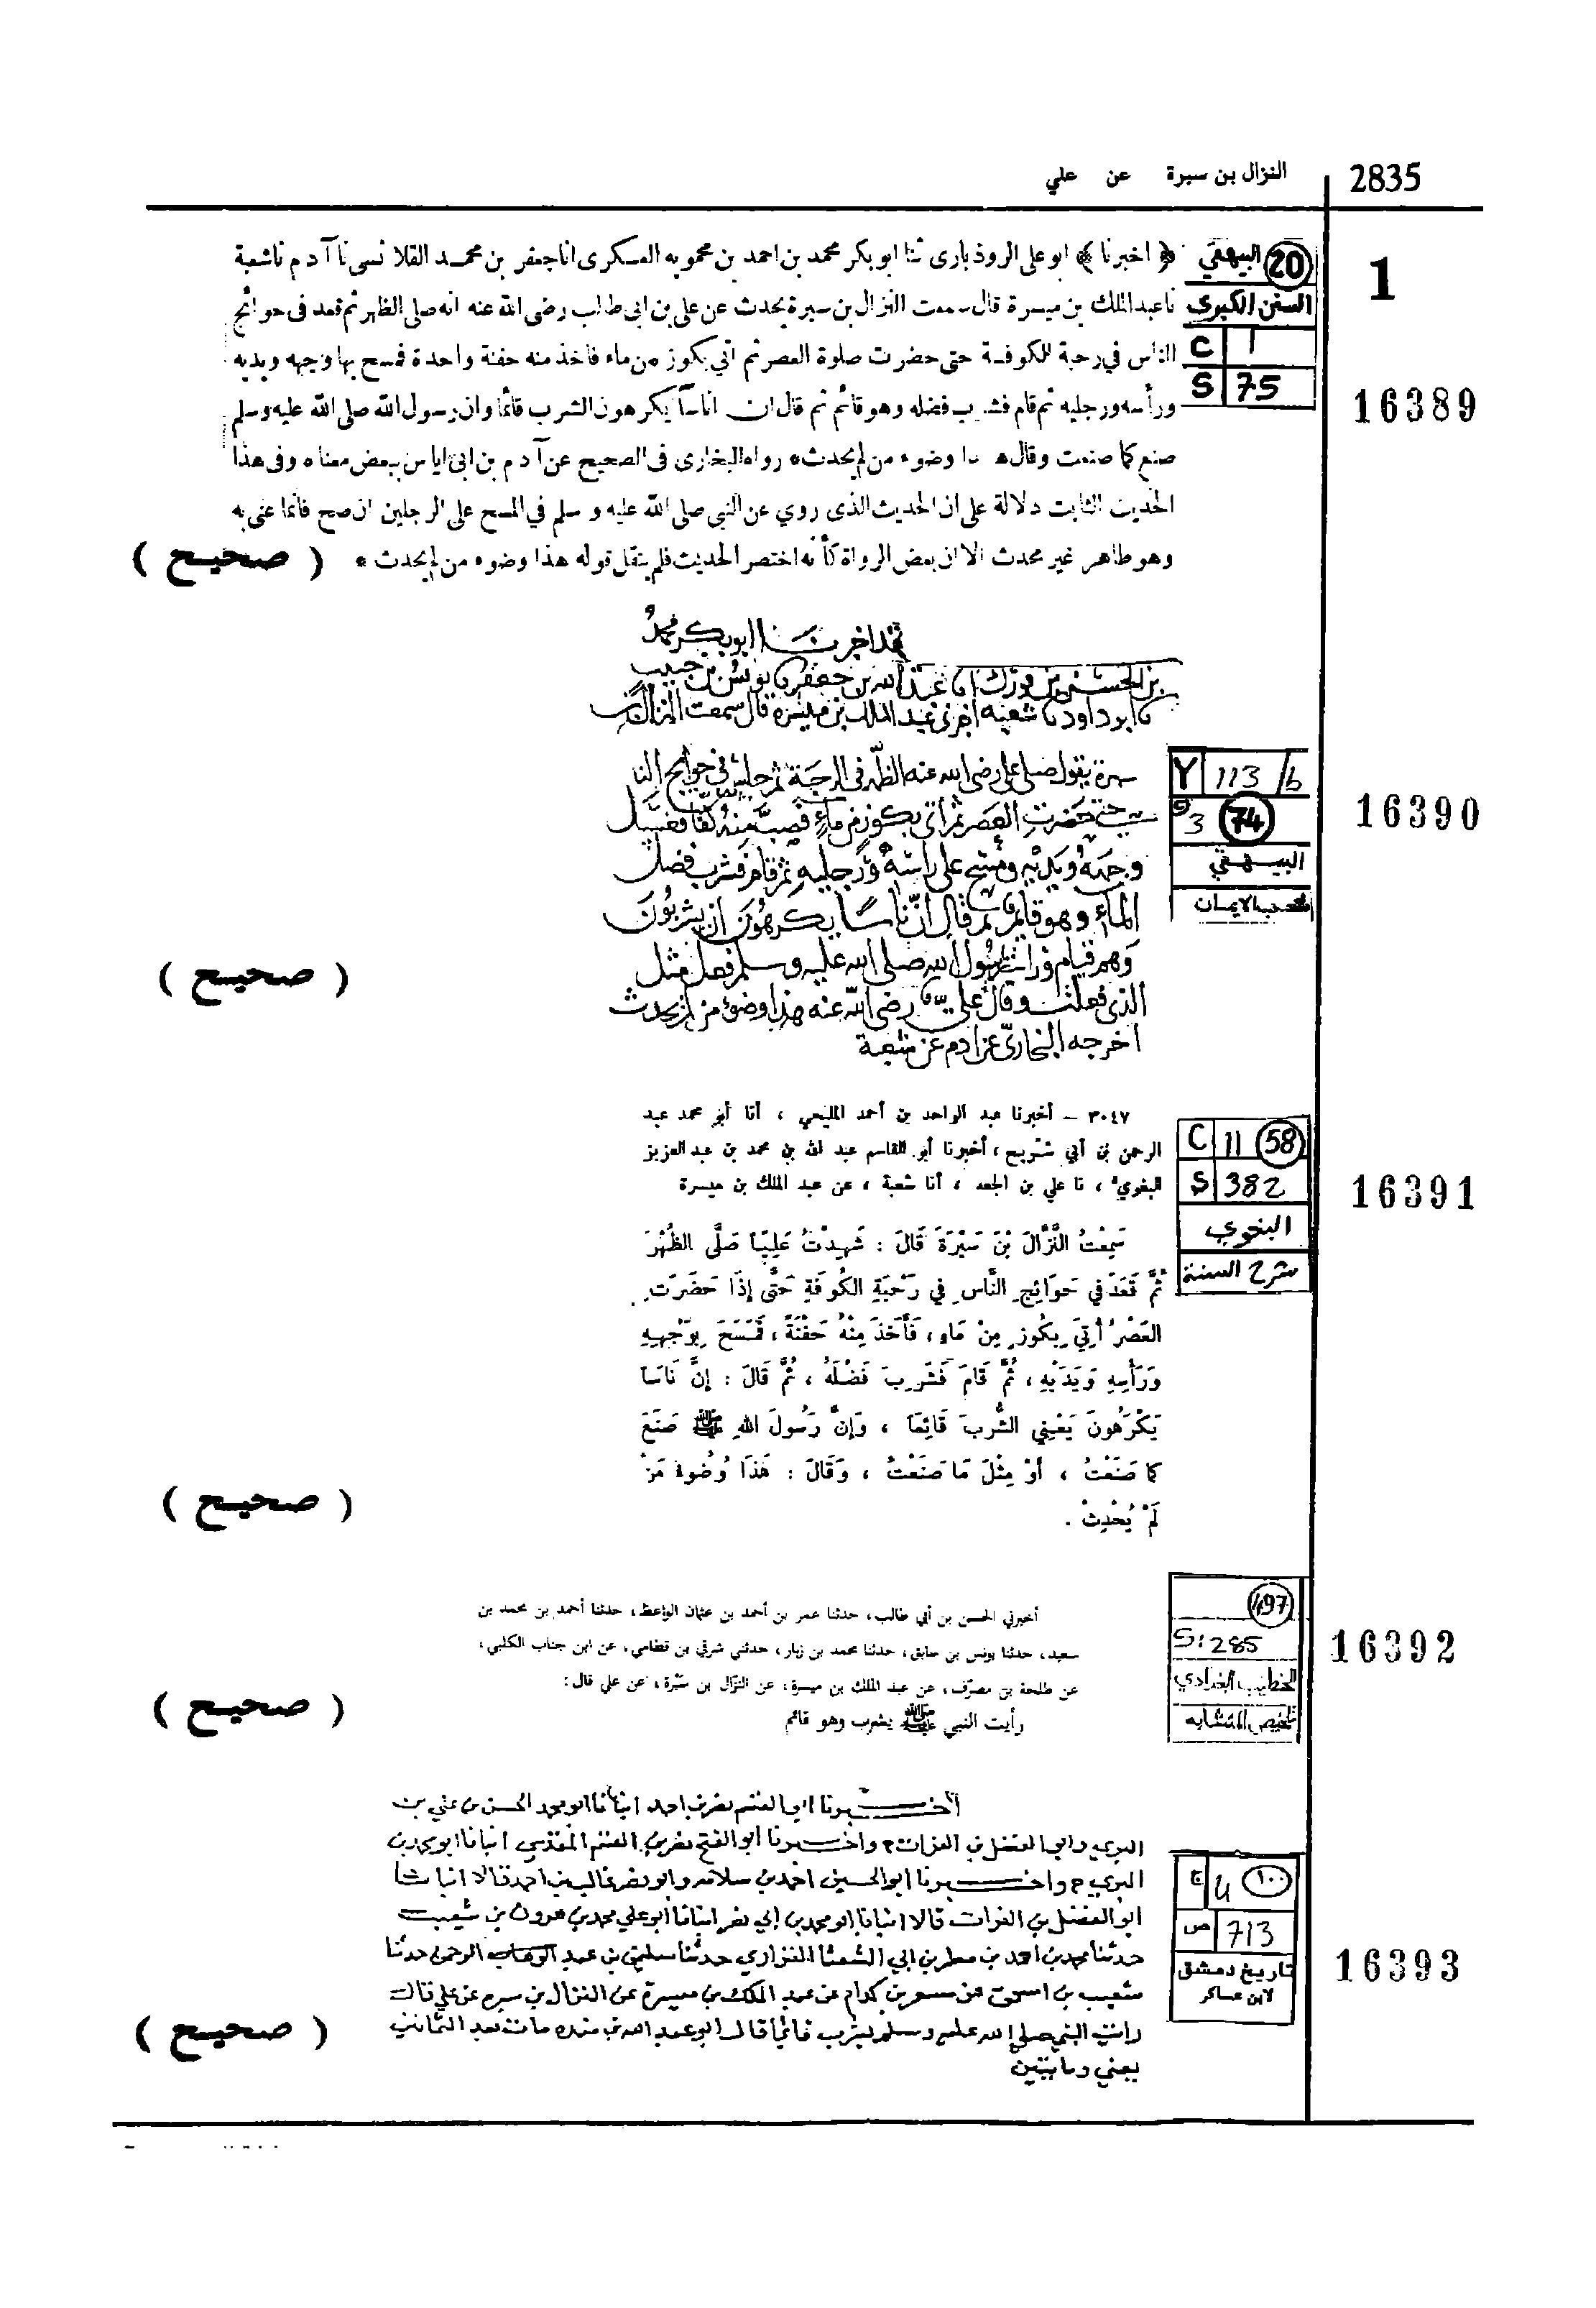 2835
النزال بن سبرة عن علي
1
16389
20 البيهقي
السنن الكبرى
C 1
S 75
﴿ اخبرنا ﴾ ابو على الروذبارى ثنا ابو بكر محمد بن احمد بن محمويه العسكرى انا جعفر بن محمد القلانسى نا آدم نا شعبة
نا عبد الملك بن ميسرة قال سمعت النزال بن سبرة يحدث عن على بن ابى طالب رضى الله عنه انه صلى الظهر ثم قعد فى حوائج
الناس في رحبة الكوفة حتى حضرت صلوة العصر ثم اتي بكوز من ماء فاخذ منه حفنة واحدة فمسح بها وجهه ويديه
ورأسه ورجليه ثم قام فشرب فضله وهو قائم ثم قال ان اناسا يكرهون الشرب قائما وان رسول الله صلى الله عليه وسلم
صنع كما صنعت وقال هذا وضوء من لم يحدث * رواه البخارى فى الصحيح عن آدم بن ابى اياس ببعض معناه وفى هذا
الحديث الثابت دلالة على ان الحديث الذى روي عن النبي صلى الله عليه وسلم في المسح على الرجلين ان صح فانما عنى به
وهو طاهر غير محدث الا ان بعض الرواة كأنه اختصر الحديث فلم ينقل قوله هذا وضوء من لم يحدث *
( صحيح )
16390
Y 113/b
3 74
البيهقي
شعب الايمان
فقد اخبرنا ابو بكر محمد
بن الحسن بن فورك انا عبد الله بن جعفر نا يونس بن حبيب
نا ابو داود نا شعبه اخبرني عبد الملك بن ميسره قال سمعت النزال بن
سبرة يقول صلى علي رضى الله عنه الظهر في الرحبة ثم جلس في حوايج النا
س حتى حضرت العصر ثم اتى بكوز من ماء فصب منه كفا فغسل
وجهه ويديه ومسح على راسه ورجليه ثم قام فشرب فضل
الماء وهو قايم ثم قال ان ناسا يكرهون ان يشربون
وهم قيام ورايت رسول الله صلى الله عليه وسلم فعل مثل
الذى فعلت وقال علي رضى الله عنه هذا وضوء من لم يحدث
اخرجه البخاري عن ادم عن شعبة
( صحيح )
16391
C 11 58
S 382
البغوي
شرح السنة
٣٠٤٧ ــ أخبرنا عبد الواحد بن أحمد المليحي ، أنا أبو محمد عبد
الرحمن بن أبي شريح ، أخبرنا أبو القاسم عبد الله بن محمد بن عبد العزيز
البغوي ، نا علي بن الجعد ، أنا شعبة ، عن عبد الملك بن ميسرة
سَمِعْتُ النَّزَّالَ بْنَ سَبْرَةَ قَالَ : شَهِدْتُ عَلِيّاً صَلَّى الظُهْرَ
ثُمَّ قَعَدَ في حَوَائِجِ النَّاسِ في رَحْبَةِ الكُوفَةِ حَتَّى إِذَا حَضَرَتِ
العَصْرُ أُتِيَ بِكُوزٍ مِنْ مَاءٍ ، فَأَخَذَ مِنْهُ حَفْنَةً ، فَمَسَحَ بِوَجْهِهِ
وَرَأْسِهِ وَيَدَيْهِ ، ثُمَّ قَامَ فَشَرِبَ فَضْلَهُ ، ثُمَّ قَالَ : إِنَّ نَاسَاً
يَكْرَهُونَ يَعْنِي الشُّربَ قَائِمَاً ، وَإِنَّ رَسُولَ اللهِ ﷺ صَنَعَ
كَمَا صَنَعْتُ ، أَوْ مِثْلَ مَا صَنَعْتُ ، وَقَالَ : هَذَا وُضُوءُ مَنْ
لَمْ يُحْدِثْ .
( صحيح )
16392
497
S: 285
الخطيب البغدادي
تلخيص المتشابه
أخبرني الحسن بن أبي طالب، حدثنا عمر بن أحمد بن عثمان الواعظ، حدثنا أحمد بن محمد بن
سعيد، حدثنا يونس بن سابق، حدثنا محمد بن زبار، حدثني شرقي بن قطامي، عن ابن جناب الكلبي،
عن طلحة بن مصرّف، عن عبد الملك بن ميسرة، عن النزّال بن سَبْرة، عن علي قال:
رأيت النبي ﷺ يشرب وهو قائم
( صحيح )
16393
ج 4 ١٠٠
ص 713
تاريخ دمشق
لابن عساكر
اخبرنا ابو الغنم احمد انبانا ابو محمد الحسن بن علي بن
البري وابو الفضل بن الفرات ح واخبرنا ابو الفتح نصر بن المقدسي انبانا ابو محمد بن
البري ح واخبرنا ابو الحسين احمد بن سلامه وابو نصر غالب بن احمد قالا انبانا
ابو الفضل بن الفرات قالا انبانا ابو محمد بن ابي نصر انبانا ابو علي محمد بن هرون بن شعيب
حدثنا محمد بن احمد بن مطر بن ابي الشعثا الفزاري حدثنا سليمن بن عبد الرحمن حدثنا
شعيب بن اسحق عن مسعر بن كدام عن عبد الملك بن ميسرة عن النزال بن سبره عن علي قال
رايت النبي صلى الله عليه وسلم يشرب قائما قال ابو عبد الله بن منده مات بعد الثمانين
يعني ومايتين
( صحيح )